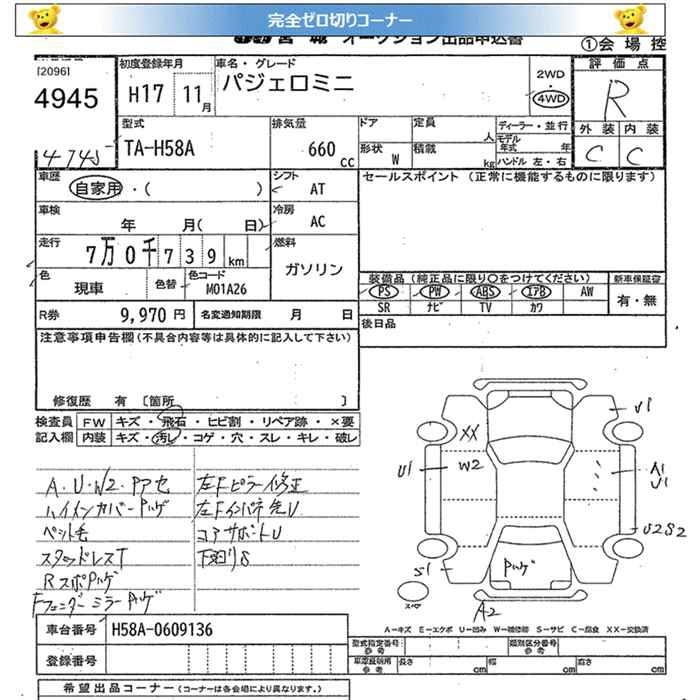 完全ゼロ切りコーナー
オークション出品申込書
①会場控
[2096]
4945
4745
初度登録年月
H17 11月
車名・グレード
パジェロミニ
2WD
・
4WD
評価点
R
外装 内装
C C
型式
TA-H58A
排気量
660 cc
ドア
定員
人
形状 W
積載
kg
ディーラー・並行
モデル年式 年
ハンドル 左・右
車歴
自家用・( )
シフト
AT
セールスポイント (正常に機能するものに限ります)
車検
年 月( 日)
冷房
AC
走行
7万0千739km
燃料
ガソリン
色
現車
色替
色コード
M01A26
装備品 (純正品に限り○をつけてください)
新車保証書
PS PW ABS エアB AW
有・無
SR ナビ TV カワ
R券 9,970円
名変通知期限 月 日
後日品
注意事項申告欄(不具合内容等は具体的に記入して下さい)
修復歴 有 〔箇所 〕
検査員記入欄
FW キズ・飛石・ヒビ割・リペア跡・×要
内装 キズ・汚レ・コゲ・穴・スレ・キレ・破レ
A・U・W2・Pアセ
ハイメンカバーPハゲ
ペット毛
スタッドレスT
RスポPハゲ
FフェンダーミラーPハゲ
左Fピラー修正
左Fインパネ先U
コアサポートU
下廻りS
U1
XX
W2
U1
A1
U1
U2S2
S1
Pハゲ
スペア
A2
A-キズ E-エクボ U-凹み W-補修跡 S-サビ C-腐食 XX-交換済
車台番号 H58A-0609136
登録番号
型式指定番号 参考
類別区分番号 参考
車庫証明用 参考
長さ cm
幅 cm
高さ cm
希望出品コーナー (コーナーは各会場により異なります。)